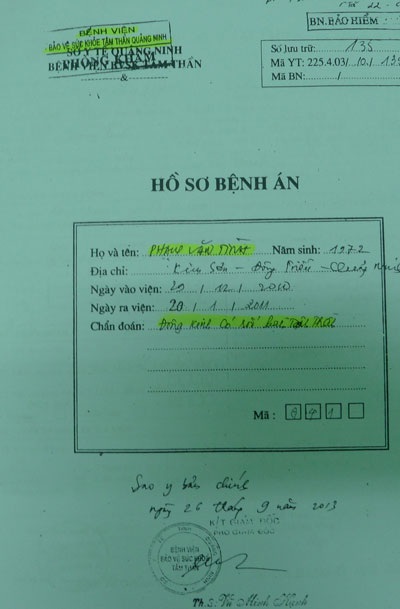 BỆNH VIỆN
BẢO VỆ SỨC KHỎE TÂM THẦN QUẢNG NINH
SỞ Y TẾ QUẢNG NINH
PHÒNG KHÁM
BỆNH VIỆN BVSK TÂM THẦN
&
BN.BẢO HIỂM
Số lưu trữ: 135
Mã YT: 225.4.03/ 10./ 135
Mã BN: /
HỒ SƠ BỆNH ÁN
Họ và tên: Năm sinh: 1972
Địa chỉ: Kim Sơn - Đông Triều - Quảng Ninh
Ngày vào viện: 20 / 12 / 2010
Ngày ra viện: 20 / 1 / 2011
Chẩn đoán: Động Kinh Có
Mã :
Sao y bản chính
ngày 26 tháng 9 năm 2013
K/T GIÁM ĐỐC
PHÓ GIÁM ĐỐC
BỆNH VIỆN
BẢO VỆ SỨC KHỎE
TÂM THẦN
Th.S. Vũ Minh Hạnh